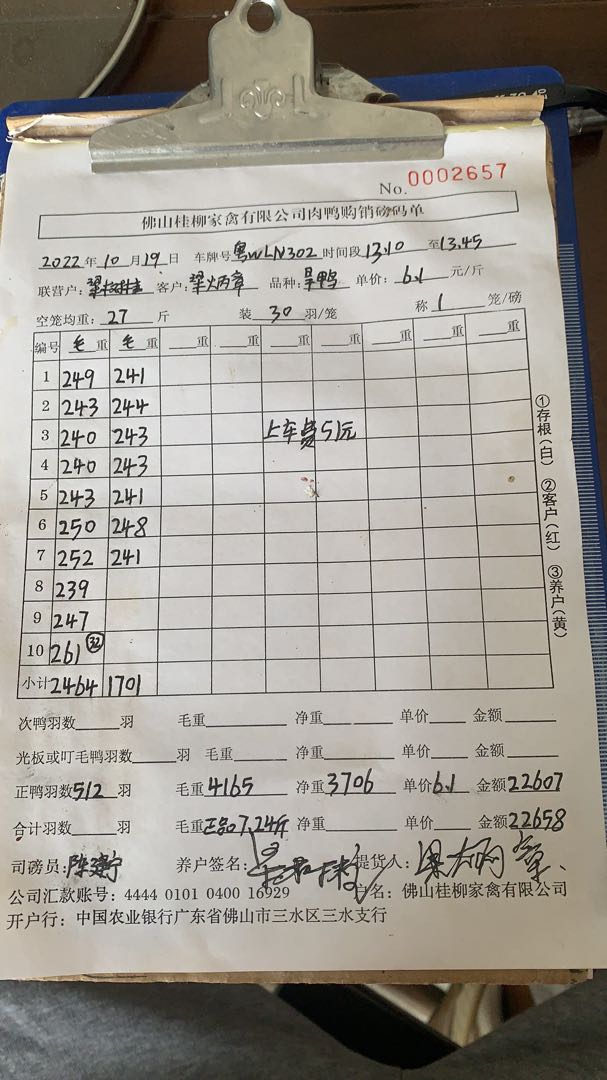 No. 0002657
佛山桂柳家禽有限公司肉鸭购销磅码单
2022年10月19日 车牌号粤WLN302 时间段13.10至13.45
联营户: 客户:梁炳章 品种: 鸭 单价:6.1元/斤
空笼均重:27斤 装30羽/笼 称1笼/磅
编号 毛重 毛重 重 重 重 重 重 重 重
1 249 241
2 243 244
3 240 243 上车费51元
4 240 243
5 243 241
6 250 248
7 252 241
8 239
9 247
10 261 32
小计 2464 1701
①存根(白) ②客户(红) ③养户(黄)
次鸭羽数 羽 毛重 净重 单价 金额
光板或叮毛鸭羽数 羽 毛重 净重 单价 金额
正鸭羽数512羽 毛重4165 净重3706 单价6.1 金额22607
合计羽数 羽 毛重正品7.24斤 净重 单价 金额22658
司磅员: 养户签名: 提货人:
公司汇款账号:4444 0101 0400 16929 户名:佛山桂柳家禽有限公司
开户行:中国农业银行广东省佛山市三水区三水支行